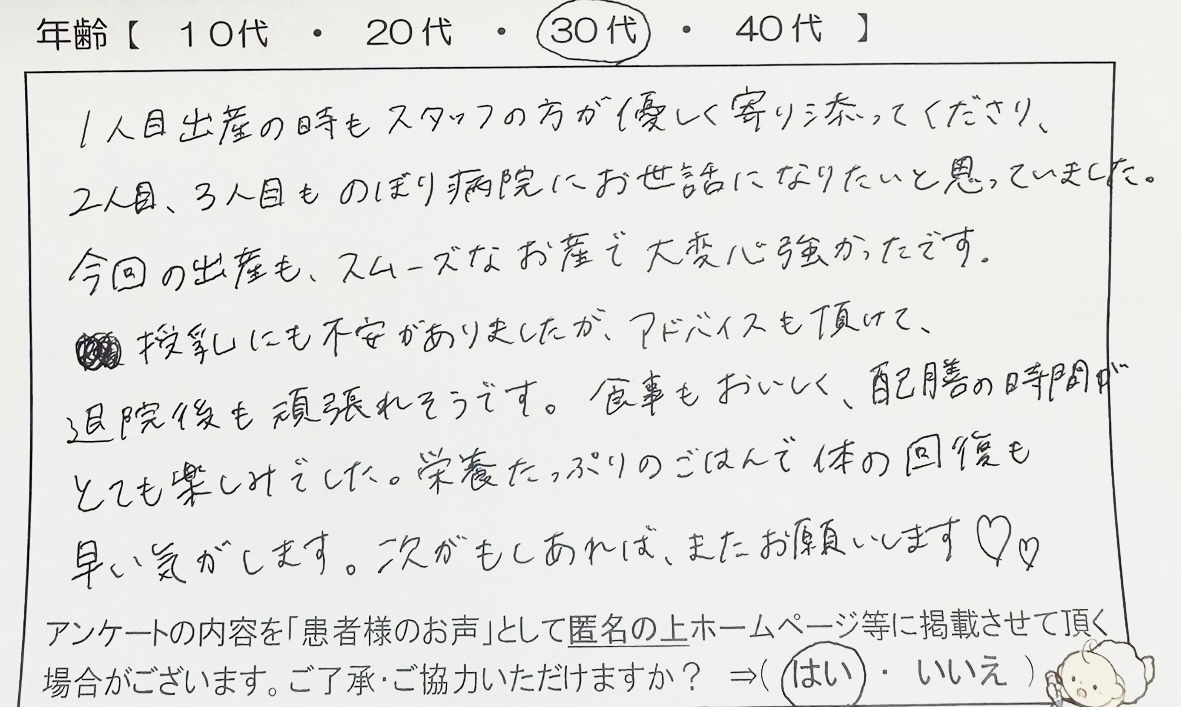 年齢【　10代　・　20代　・　30代　・　40代　】
1人目出産の時もスタッフの方が優しく寄り添ってくださり、
2人目、3人目ものぼり病院にお世話になりたいと思っていました。
今回の出産も、スムーズなお産で大変心強かったです。
授乳にも不安がありましたが、アドバイスも頂けて、
退院後も頑張れそうです。食事もおいしく、配膳の時間が
とても楽しみでした。栄養たっぷりのごはんで体の回復も
早い気がします。次がもしあれば、またお願いします♡♡
アンケートの内容を「患者様のお声」として匿名の上ホームページ等に掲載させて頂く
場合がございます。ご了承・ご協力いただけますか？　⇒(　はい　・　いいえ　)